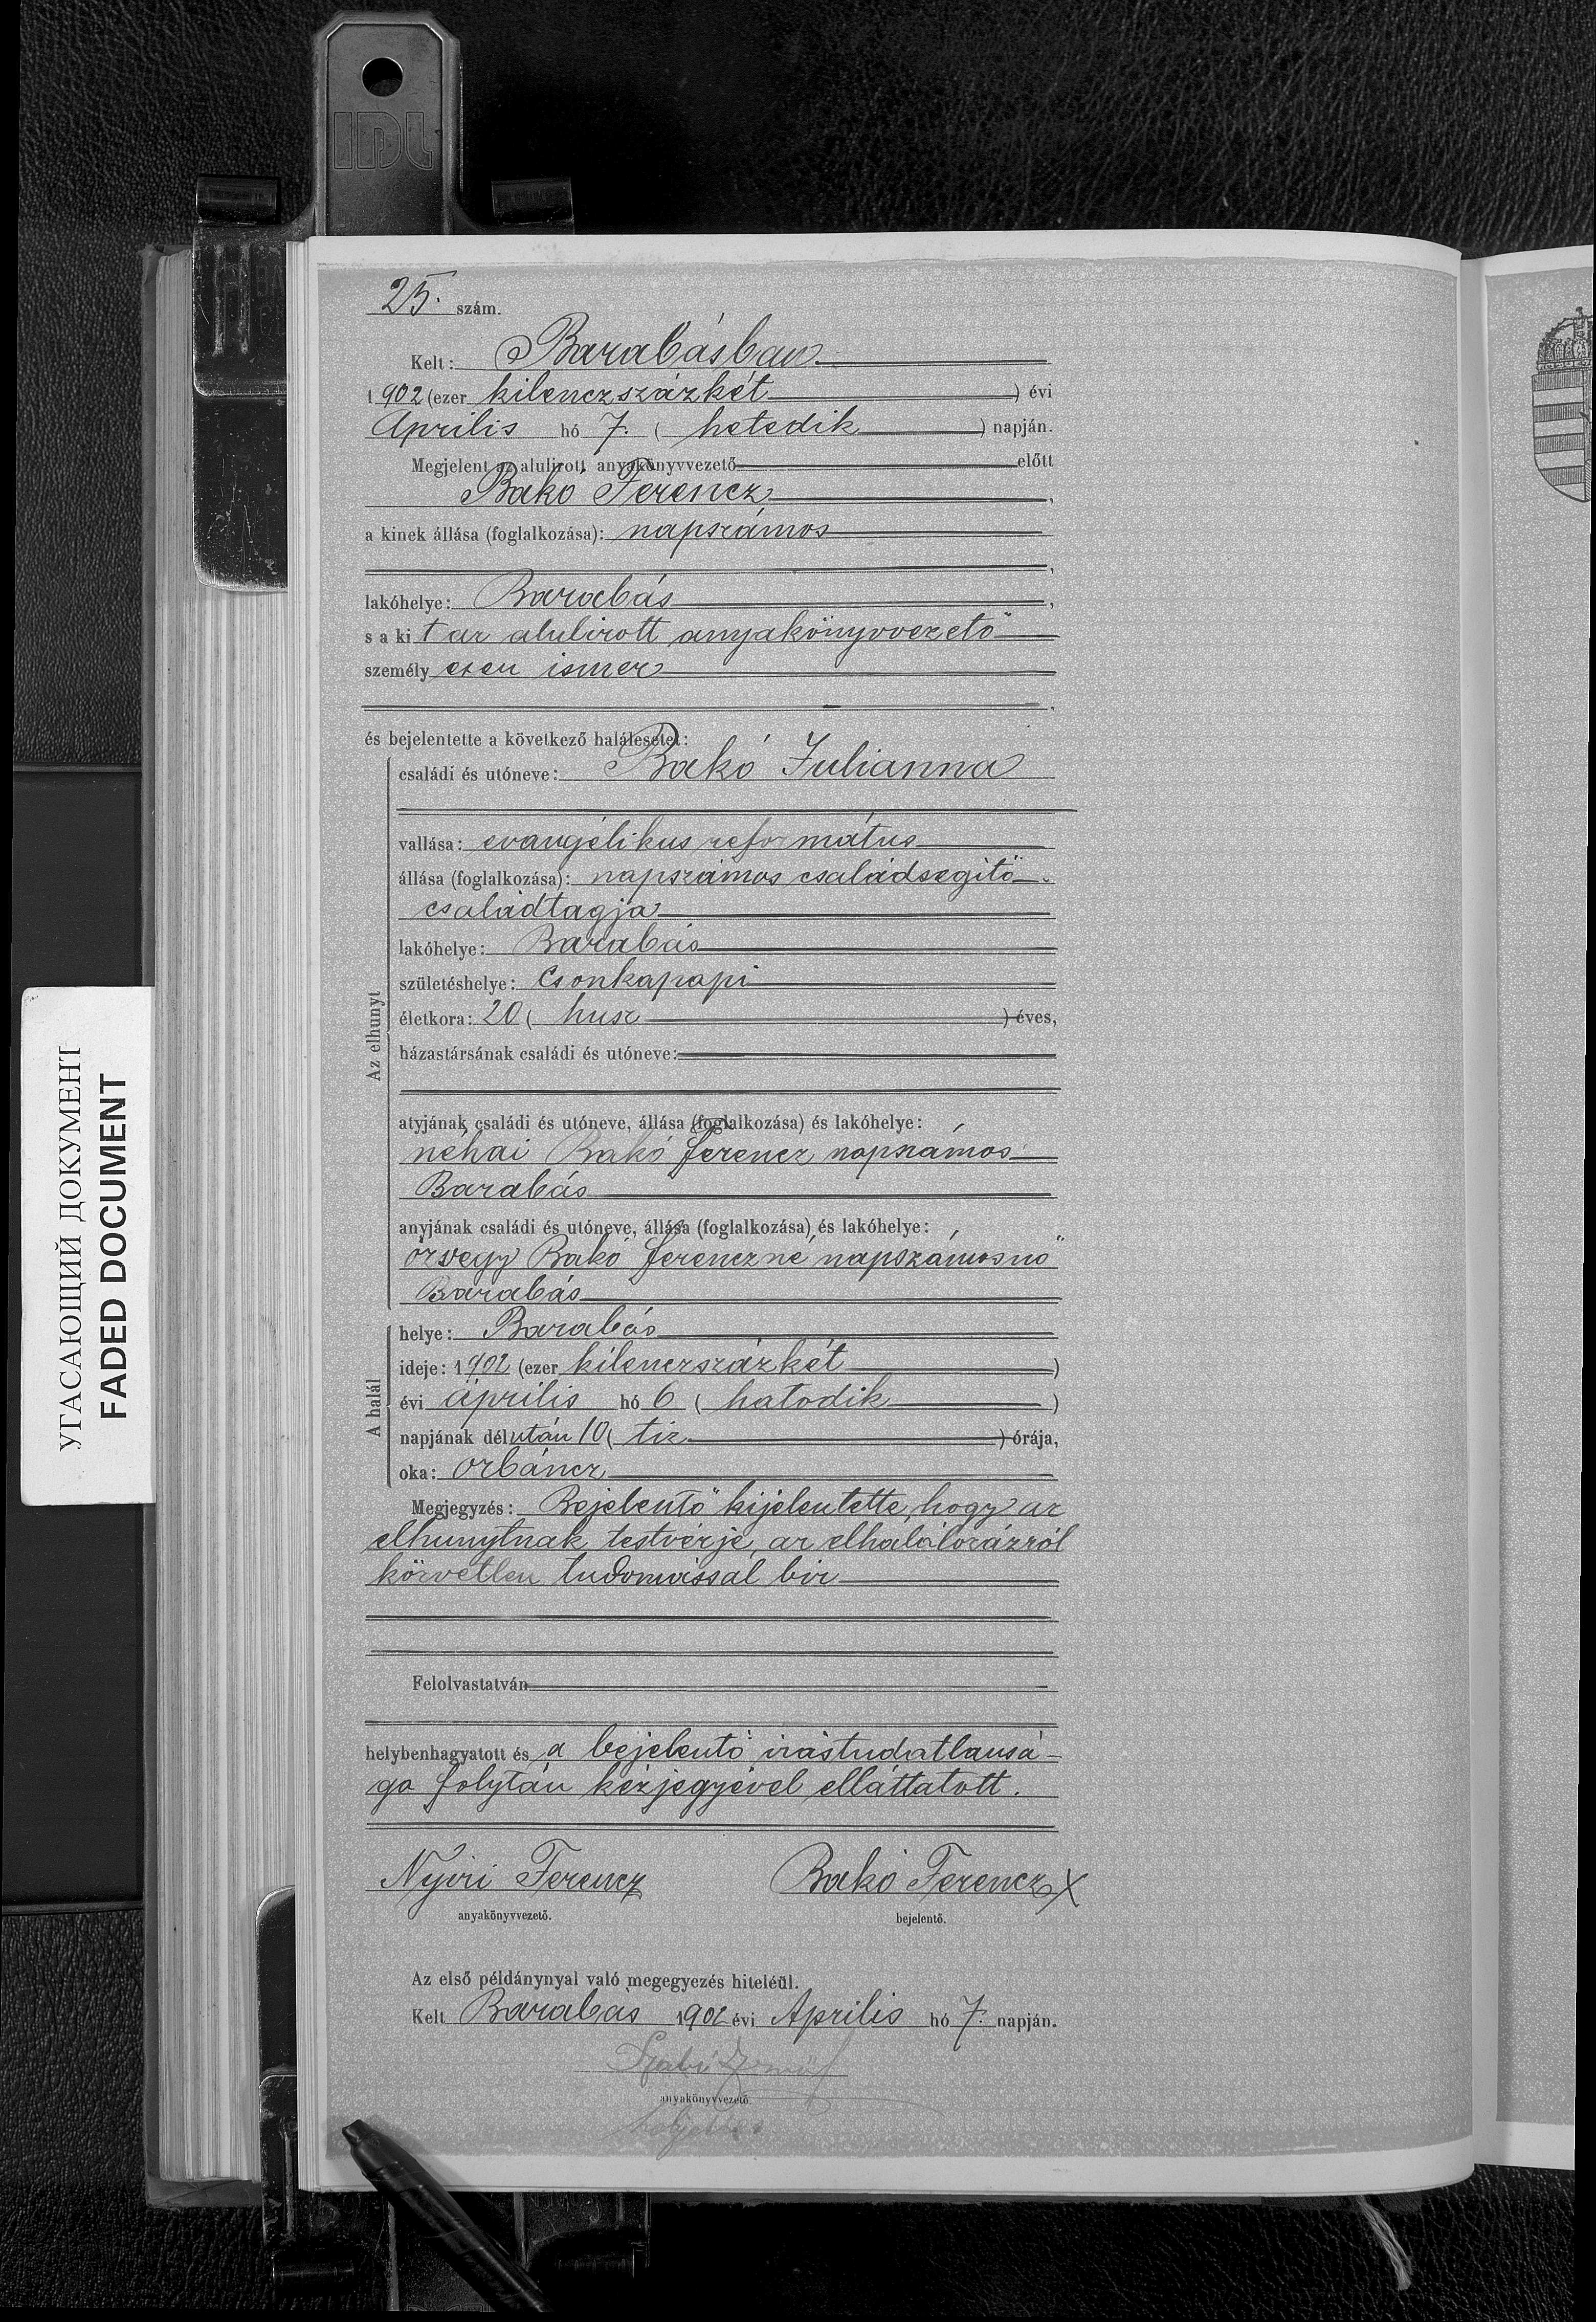 IDL
25. szám.
Kelt: Barabásban
1902 (ezer kilenczszázkét ) évi
Április hó 7. ( hetedik ) napján.
Megjelent az alulirott anyakönyvvezető előtt
Bakó Ferencz ,
a kinek állása (foglalkozása): napszámos
,
lakóhelye: Barabás ,
s a ki t az alulirott anyakönyvvezető
személy esen ismer
.
és bejelentette a következő halálesetet:
családi és utóneve: Bakó Julianna
vallása: evangélikus református
állása (foglalkozása): napszámos családsegitő
családtagja
lakóhelye: Barabás
születéshelye: Csonkapapi
életkora: 20 ( húsz ) éves,
házastársának családi és utóneve:
Az elhunyt
atyjának családi és utóneve, állása (foglalkozása) és lakóhelye:
néhai Bakó Ferencz napszámos
Barabás
anyjának családi és utóneve, állása (foglalkozása) és lakóhelye:
özvegy Bakó Ferenczné napszámosnő
Barabás
helye: Barabás
ideje: 1902 (ezer kilenczszázkét )
évi április hó 6 ( hatodik )
A halál
napjának délután 10 ( tiz ) órája,
oka: orbáncz
Megjegyzés: Bejelentő kijelentette, hogy az
elhunytnak testvérje, az elhalálozásról
közvetlen tudomással bir
Felolvastatván
helybenhagyatott és a bejelentő irástudatlansá-
ga folytán kézjegyével elláttatott.
Nyíri Ferencz Bakó Ferencz X
anyakönyvvezető. bejelentő.
Az első példánynyal való megegyezés hiteléül.
Kelt Barabás 1902 évi Április hó 7. napján.
Szabó
anyakönyvvezető
helyettes
УГАСАЮЩИЙ ДОКУМЕНТ
FADED DOCUMENT